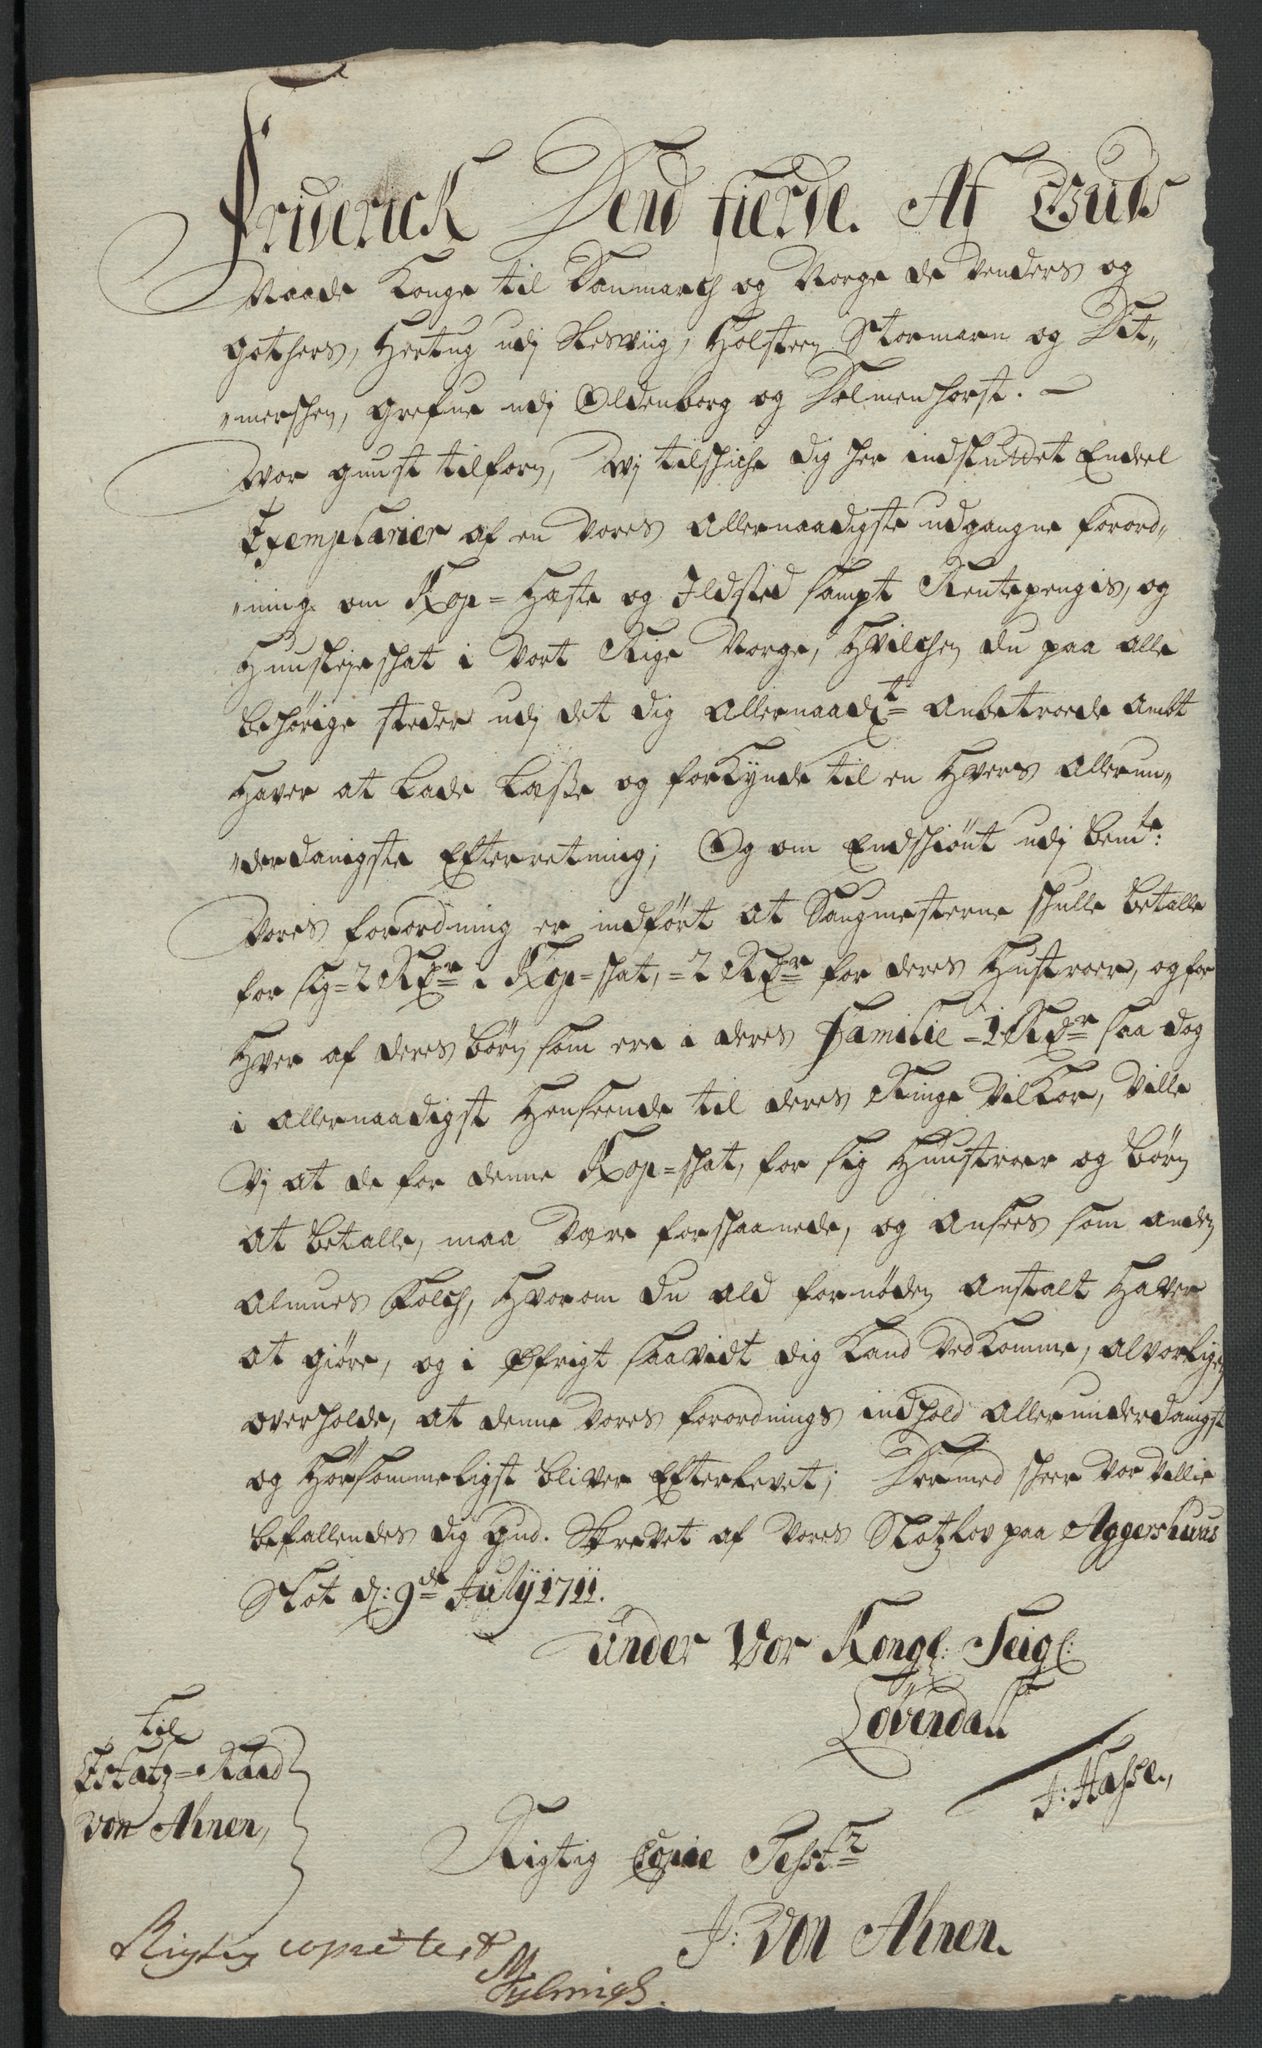 Friderick Dend fierde. Af Guds
Naade Konge til Danmarch og Norge de Venders og
Gothers, Hertug udj Slesviig, Holsteen Stormarn og Dit„
„merschen, Grefue udj Oldenborg og Delmenhorst. —
Wor gunst tilforn, Wj tilschiche dig her indsluttet Endeel
Exemplarier af en Vores Allernaadigste udgangne forord„
„ning om Kop= Haste og Ildsted sampt Rentepengis, og
Huusleje schat i Vort Rige Norge, Hvilchen du paa alle
behørige steder udj det dig Allernaadt= Anbetroede Ambt
Haver at Lade Læse og forKynde til en Hvers Allerun„
„derdanigste Efterretning; Og om Endschiønt udj bemte:
Vores forordning er indført at Saugmesterne schulle betalle
for sig= 2 Rdr= i Kop=schat,= 2 Rdr= for deres Hustroer, og for
Hver af deres børn som ere i deres Familie= 1 Rdr= saa dog
i allernaadigst Henseende til deres Ringe Vilkor, Ville
Vj at de for denne Kop=schat, for sig Huustroer og børn
at betalle, maa Være forschaanede, og ansees som anden
Almues Folch, Hvorom Du ald fornøden Anstalt Haver
at giøre, og i Øfrigt saavidt dig Kand VedKomme, alvorligen
overholde, at denne Vores forordnings indhold Allerunderdanigst
og Hørsommeligst bliver Efterlevet; Dermed scheer Vor Villie
befallendes dig Gud. Skrevet af Vores Slotzlov paa Aggershuus
Slot d: 9de July 1711.
Under Vor Kongl: Seigl:
Løvendall
J: Hasse,
Til
Estatz=Raad
von Ahnen,
Rigtig Copie Testr=
J: Von Ahnen.
Rigtig copie test